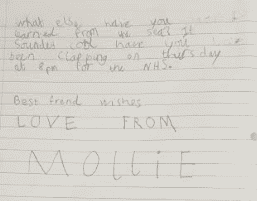 what else have you
learned from the seas it
Sounded cool have you
been clapping on thursday
at 8pm for the NHS.
Best friend wishes
LOVE FROM
MOLLIE